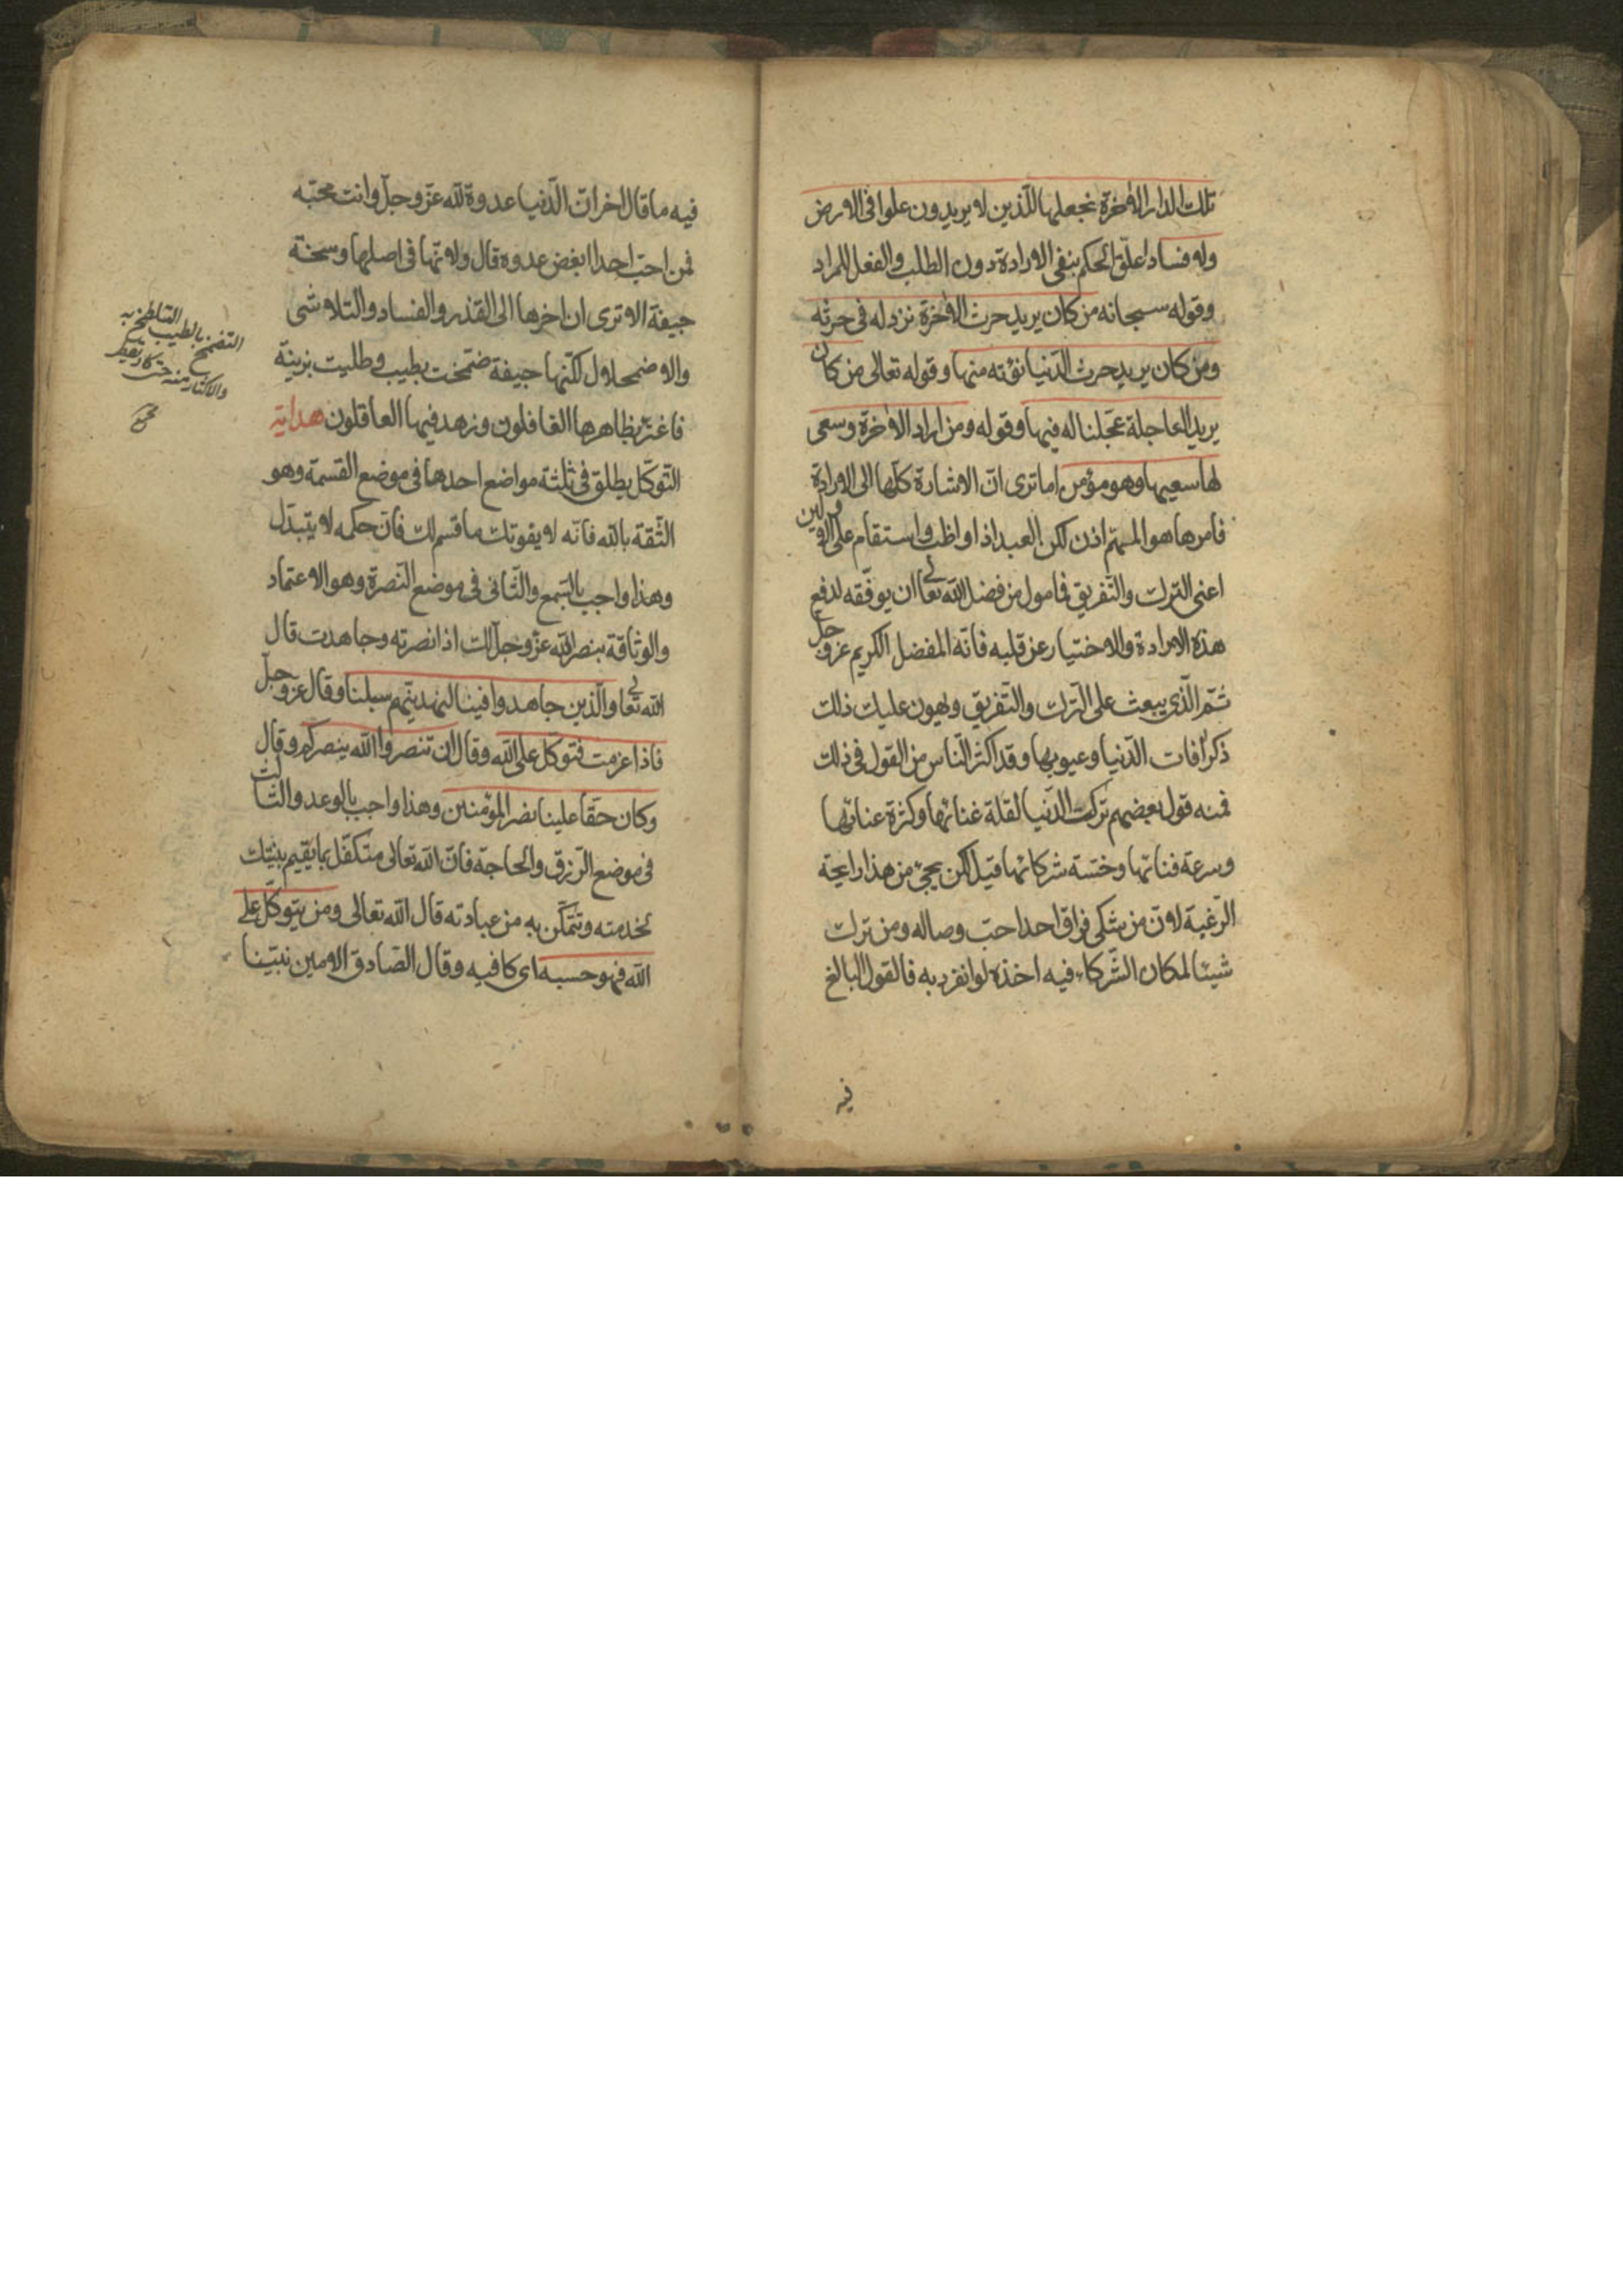 تلك الدار الآخرة نجعلها للذين لا يريدون علوا في الارض
ولا فسادا علّق الحكم بنفي الارادة دون الطلب والفعل للمراد
وقوله سبحانه من كان يريد حرث الآخرة نزد له في حرثه
ومن كان يريد حرث الدّنيا نؤته منها وقوله تعالى من كان
يريد العاجلة عجّلنا له فيها وقوله ومن اراد الآخرة وسعى
لها سعيها وهو مؤمن اما ترى انّ الاشارة كلّها الى الارادة
فامرها هو المهمّ اذن لكن العبد اذا واظب واستقام على الاوّلين
اعنى الترك والتّفريق فمامول من فضل الله تعالى ان يوفّقه لدفع
هذه الارادة والاختيار عن قلبه فانّه المفضل الكريم عزّ وجلّ
ثمّ الّذى يبعث على التّرك والتّفريق ويهون عليك ذلك
ذكر آفات الدّنيا وعيوبها وقد اكثر النّاس من القول فى ذلك
فمنه قول بعضهم تركت الدّنيا لقلة غنائها وكثرة عنائها
وسرعة فنائها وخسّة شركائها قيل لكن يجئ من هذا رايحة
الرّغبة لانّ من شكى فراق احد احبّ وصاله ومن ترك
شيئا لمكان الشّركاء فيه اخذه لو انفرد به فالقول البالغ
فيه
فيه ما قال اخر انّ الدّنيا عدوة لله عزّ وجلّ وانت محبّه
فمن احبّ احدا ابغض عدوه قال ولانّها فى اصلها وسخة
جيفة الا ترى ان اخرها الى القذر والفساد والتلاشى
والاضمحلال لكنّها جيفة ضمّخت بطيب وطليت بزينة
فاغترّ بظاهرها الغافلون وزهد فيها العاقلون هداية
التّوكّل يطلق فى ثلثة مواضع احدها فى موضع القسمة وهو
الثّقة بالله فانّه لا يفوتك ما قسم لك فانّ حكمه لا يتبدّل
وهذا واجب بالسّمع والثّانى فى موضع النّصرة وهو الاعتماد
والوثاقة بنصر الله عزّ وجلّ لك اذا نصرته وجاهدت قال
الله تعالى والّذين جاهدوا فينا لنهدينّهم سبلنا وقال عزّ وجلّ
فاذا عزمت فتوكّل على الله وقال ان تنصروا الله ينصركم وقال
وكان حقّا علينا نصر المؤمنين وهذا واجب بالوعد والثّالث
فى موضع الرّزق والحاجة فانّ الله تعالى متكفّل بما يقيم بنيتك
لخدمته وتتمكّن به من عبادته قال الله تعالى ومن يتوكّل على
الله فهو حسبه اى كافيه وقال الصّادق الامين نبيّنا
التضمخ بالطيب التلطخ به
والاكثار منه حتى كاد يقطر